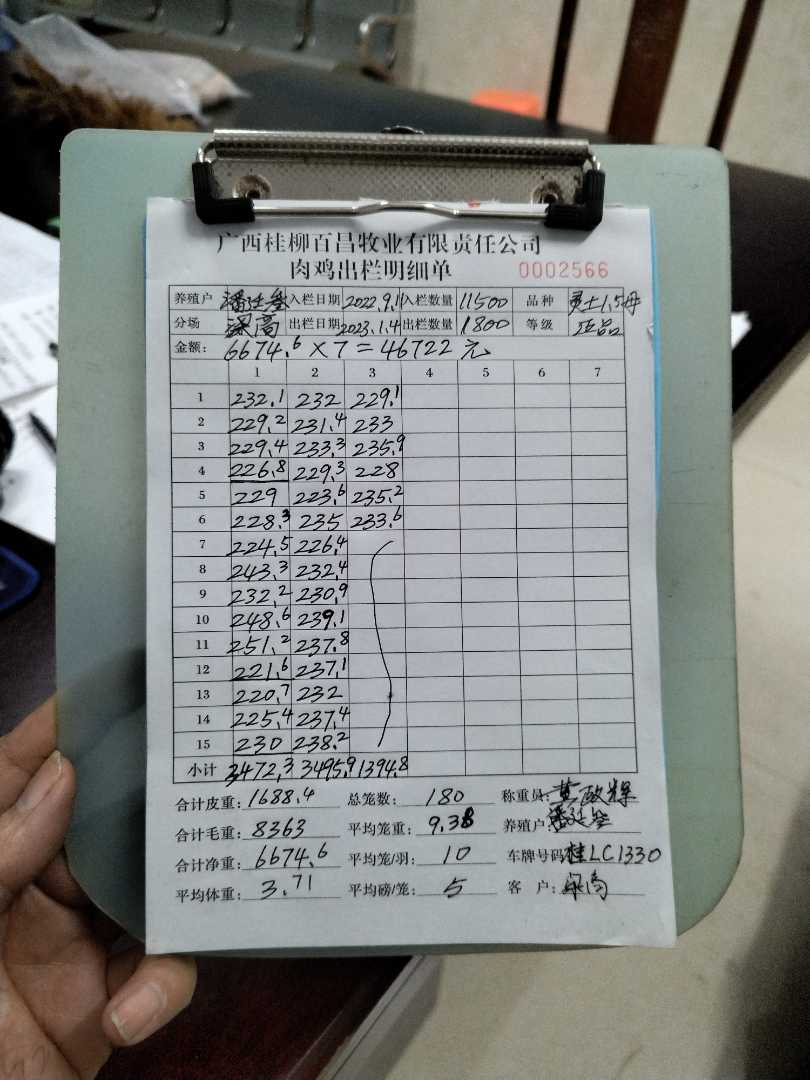 广西桂柳百昌牧业有限责任公司
肉鸡出栏明细单 0002566
养殖户 潘廷 入栏日期 2022.9.1 入栏数量 11500 品种 土1.5母
分场 深高 出栏日期 2023.1.4 出栏数量 1800 等级 正品
金额: 6674.6×7=46722元
1 2 3 4 5 6 7
1 232.1 232 229.1
2 229.2 231.4 233
3 229.4 233.3 235.9
4 226.8 229.3 228
5 229 223.6 235.2
6 228.3 235 233.6
7 224.5 226.4
8 243.3 232.4
9 232.2 230.9
10 248.6 239.1
11 251.2 237.8
12 221.6 237.1
13 220.7 232
14 225.4 237.4
15 230 238.2
小计 3472.3 3495.9 1394.8
合计皮重: 1688.4 总笼数: 180 称重员: 黄
合计毛重: 8363 平均笼重: 9.38 养殖户: 潘廷
合计净重: 6674.6 平均笼/羽: 10 车牌号码 桂LC1330
平均体重: 3.71 平均磅/笼: 5 客 户: 高